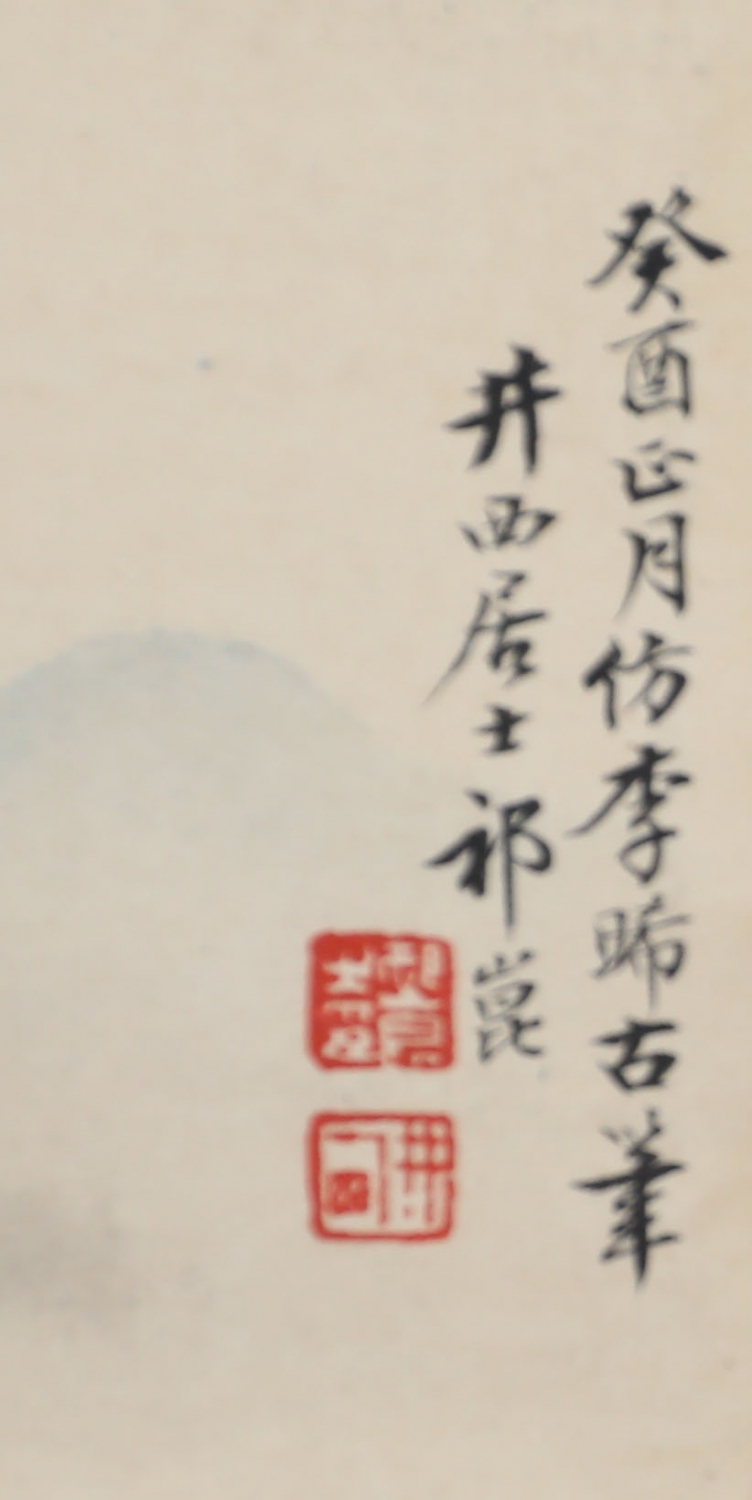 癸酉正月仿李晞古筆
井西居士祁崑